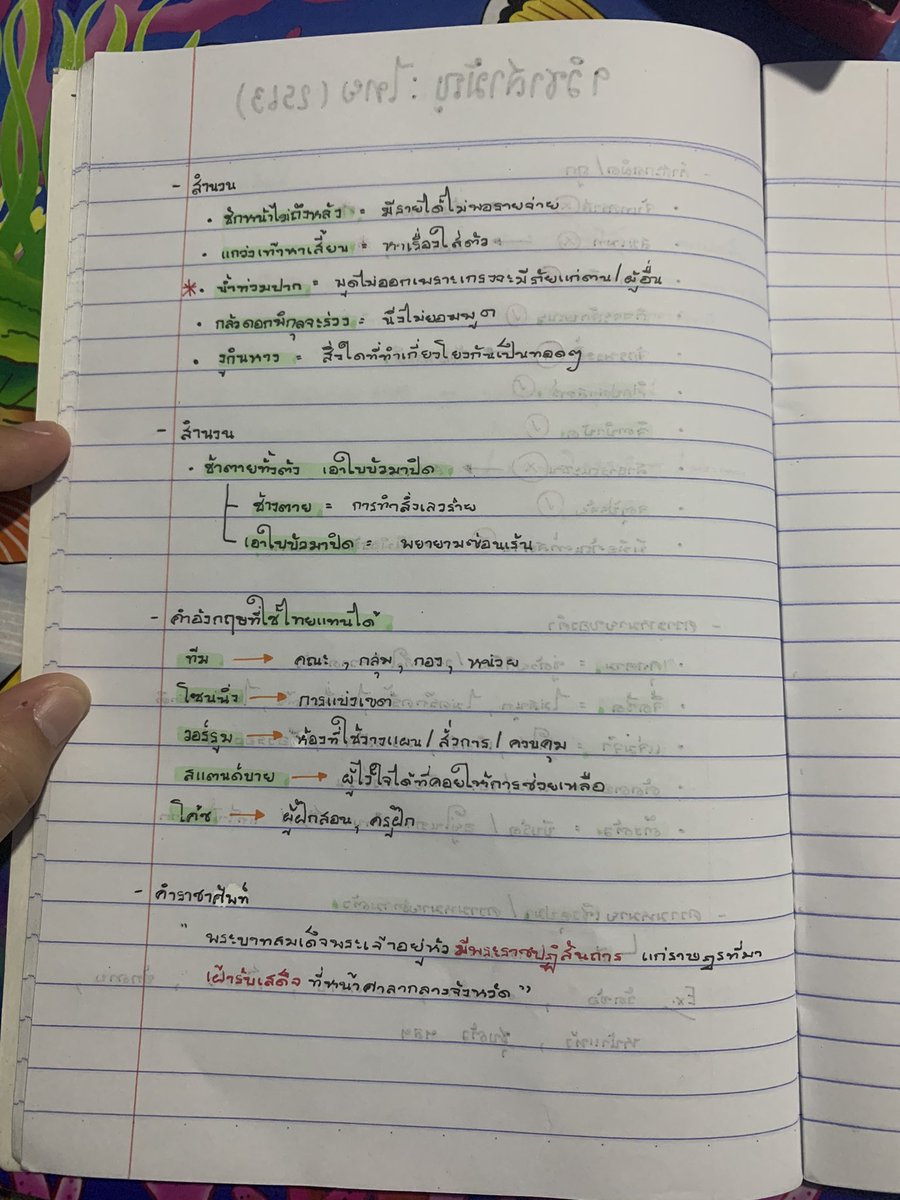 - สำนวน
• ชักหน้าไม่ถึงหลัง = มีรายได้ไม่พอรายจ่าย
• แกว่งเท้าหาเสี้ยน = หาเรื่องใส่ตัว
* • น้ำท่วมปาก = พูดไม่ออกเพราะเกรงจะมีภัยแก่ตน/ผู้อื่น
• กลัวดอกพิกุลจะร่วง = นิ่งไม่ยอมพูด
• งูกินหาง = สิ่งใดที่ทำเกี่ยวโยงกันเป็นทอดๆ
- สำนวน
• ช้าตายทั้งตัว เอาใบบัวมาปิด
ช้างตาย = การทำสิ่งเลวร้าย
เอาใบบัวมาปิด = พยายามซ่อนเร้น
- คำอังกฤษที่ใช้ไทยแทนได้
ทีม → คณะ, กลุ่ม, กอง, หน่วย
โซนนิ่ง → การแบ่งเขต
วอร์รูม → ห้องที่ใช้วางแผน/ สั่งการ / ควบคุม
สแตนด์บาย → ผู้ไว้ใจได้ที่คอยให้การช่วยเหลือ
โค้ช → ผู้ฝึกสอน, ครูฝึก
- คำราชาศัพท์
" พระบาทสมเด็จพระเจ้าอยู่หัว มีพระราชปฏิสันถาร แก่ราษฎรที่มา
เฝ้ารับเสด็จ ที่หน้าศาลากลางจังหวัด "